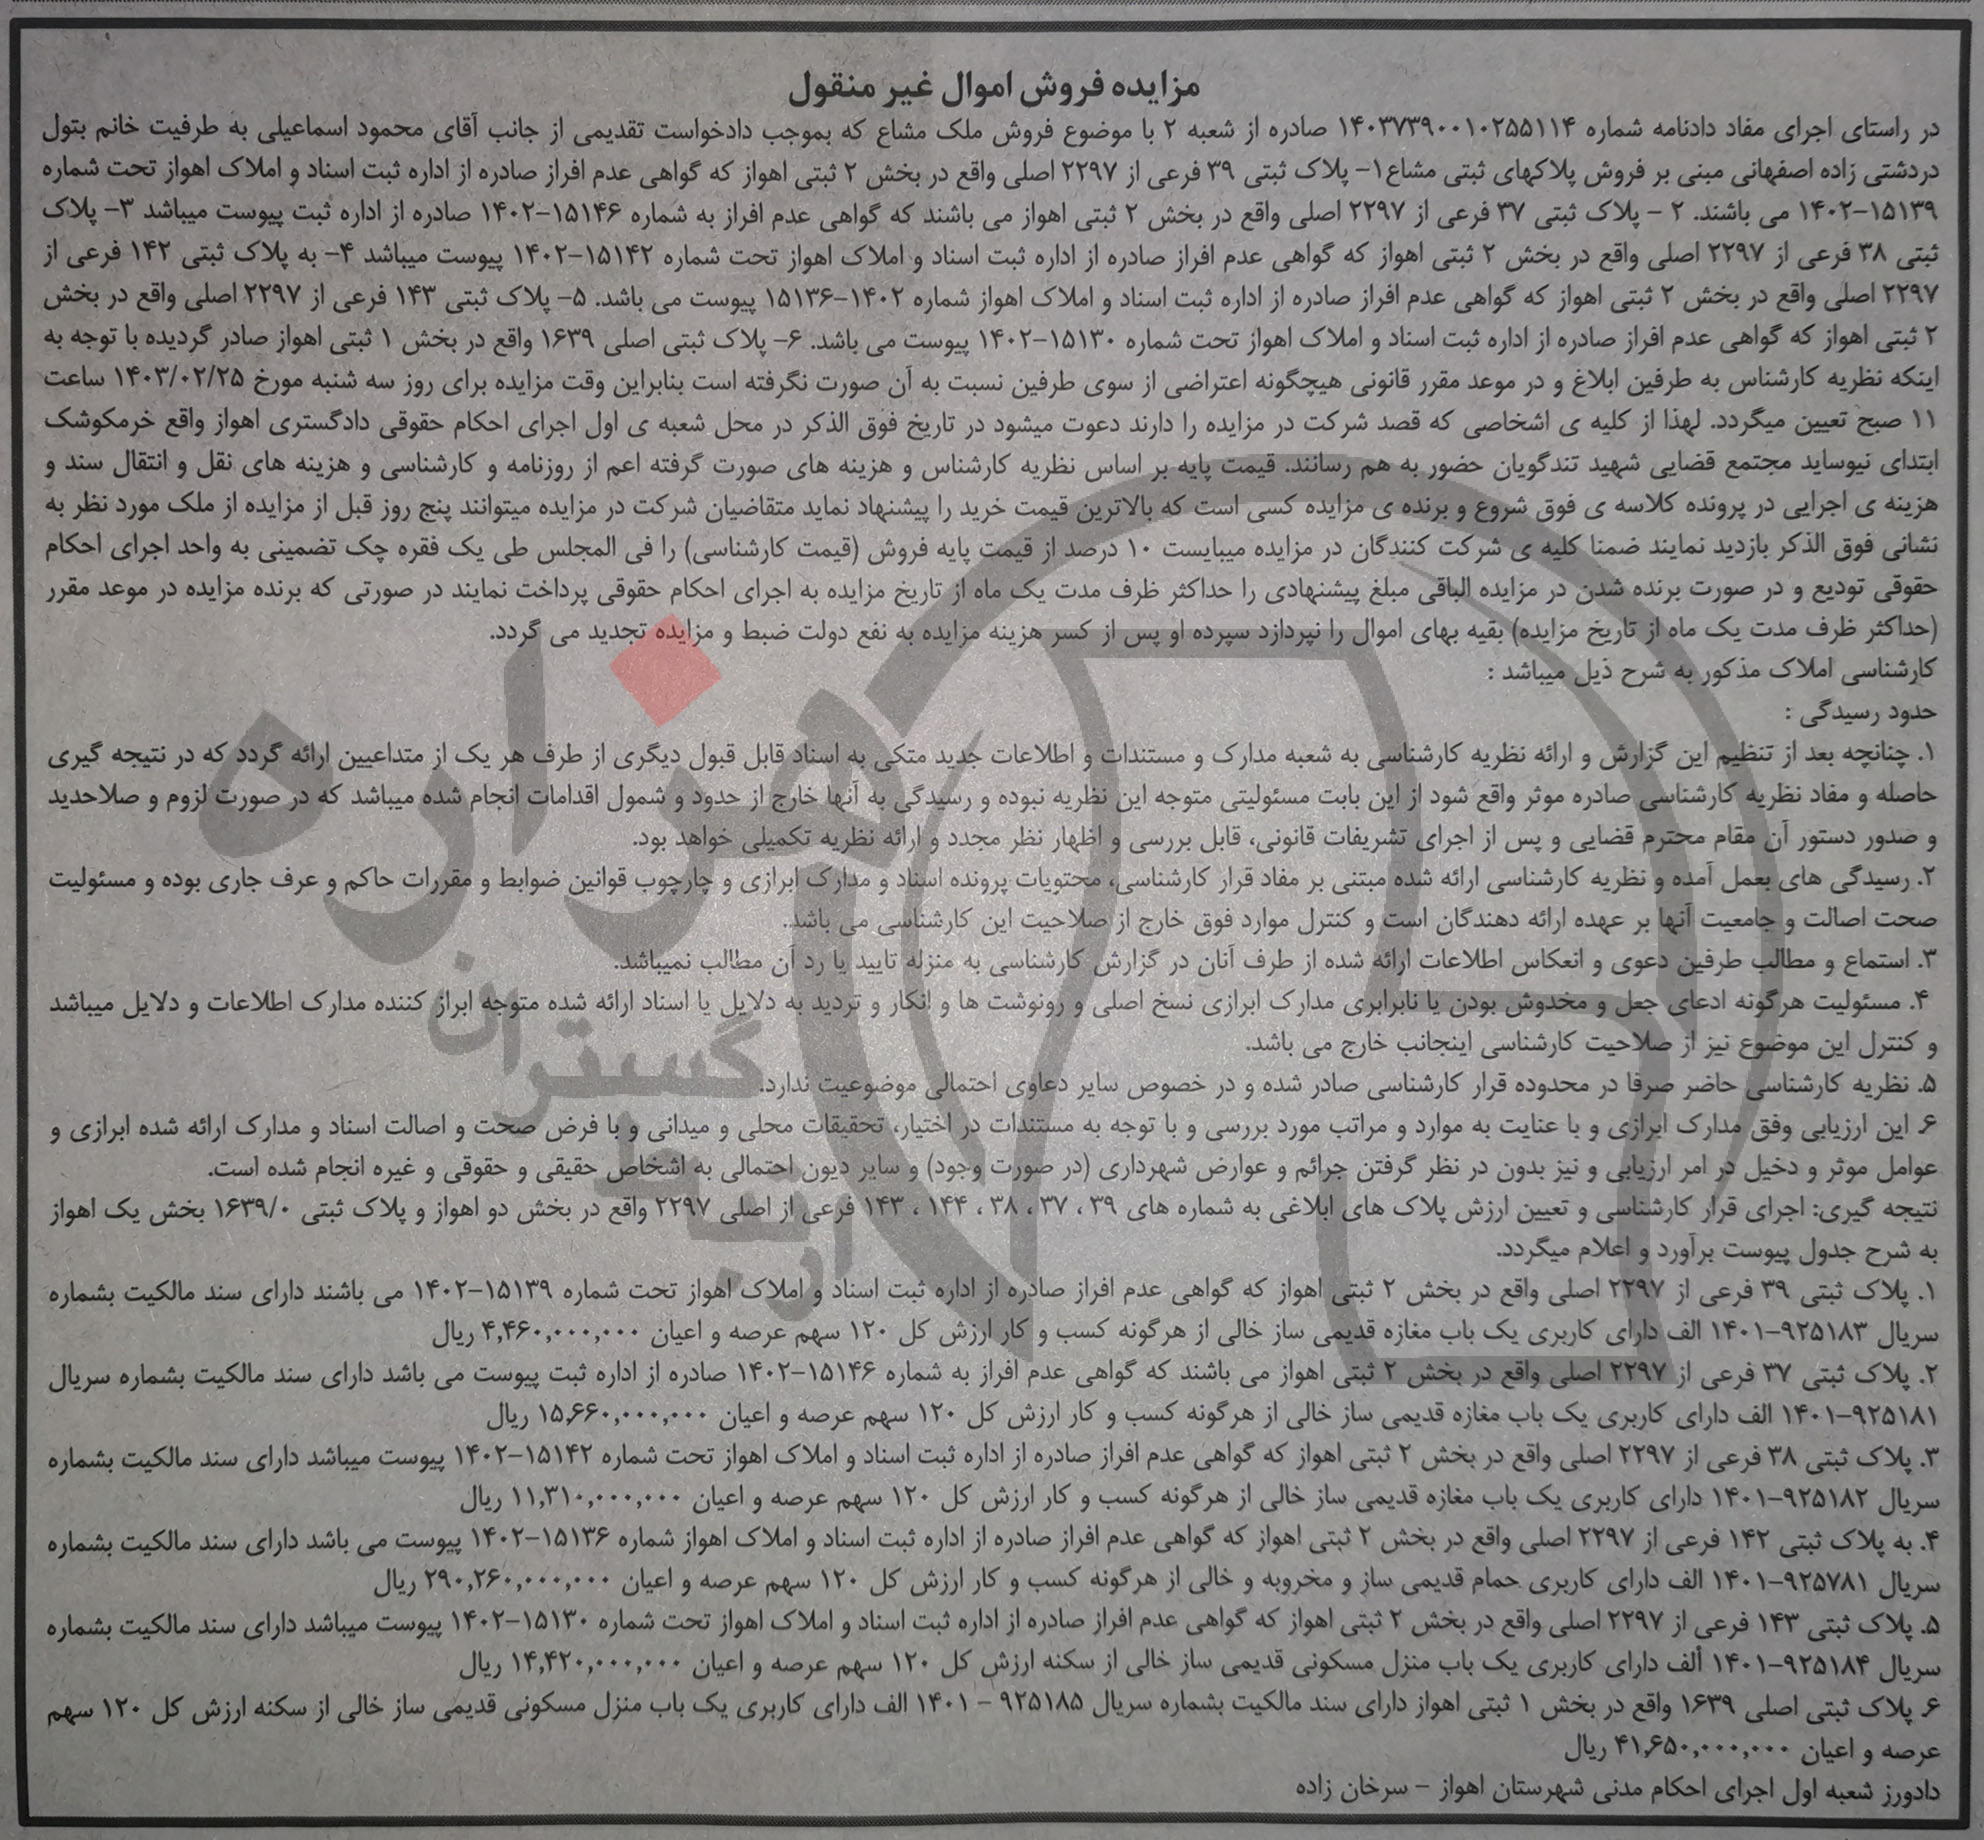 مزایده فروش اموال غیر منقول
در راستای اجرای مفاد دادنامه شماره ۱۴۰۳۷۳۹۰۰۰۱۰۲۵۵۱۱۴ صادره از شعبه ۲ با موضوع فروش ملک مشاع که بموجب دادخواست تقدیمی از جانب آقای محمود اسماعیلی به طرفیت خانم بتول
دردشتی زاده اصفهانی مبنی بر فروش پلاکهای ثبتی مشاع۱- پلاک ثبتی ۳۹ فرعی از ۲۲۹۷ اصلی واقع در بخش ۲ ثبتی اهواز که گواهی عدم افراز صادره از اداره ثبت اسناد و املاک اهواز تحت شماره
۱۵۱۳۹-۱۴۰۲ می باشند. ۲ - پلاک ثبتی ۳۷ فرعی از ۲۲۹۷ اصلی واقع در بخش ۲ ثبتی اهواز می باشند که گواهی عدم افراز به شماره ۱۵۱۴۶-۱۴۰۲ صادره از اداره ثبت پیوست میباشد ۳- پلاک
ثبتی ۳۸ فرعی از ۲۲۹۷ اصلی واقع در بخش ۲ ثبتی اهواز که گواهی عدم افراز صادره از اداره ثبت اسناد و املاک اهواز تحت شماره ۱۵۱۴۲-۱۴۰۲ پیوست میباشد ۴- به پلاک ثبتی ۱۴۲ فرعی از
۲۲۹۷ اصلی واقع در بخش ۲ ثبتی اهواز که گواهی عدم افراز صادره از اداره ثبت اسناد و املاک اهواز شماره ۱۴۰۲-۱۵۱۳۶ پیوست می باشد. ۵- پلاک ثبتی ۱۴۳ فرعی از ۲۲۹۷ اصلی واقع در بخش
۲ ثبتی اهواز که گواهی عدم افراز صادره از اداره ثبت اسناد و املاک اهواز تحت شماره ۱۵۱۳۰-۱۴۰۲ پیوست می باشد. ۶- پلاک ثبتی اصلی ۱۶۳۹ واقع در بخش ۱ ثبتی اهواز صادر گردیده با توجه به
اینکه نظریه کارشناس به طرفین ابلاغ و در موعد مقرر قانونی هیچگونه اعتراضی از سوی طرفین نسبت به آن صورت نگرفته است بنابراین وقت مزایده برای روز سه شنبه مورخ ۱۴۰۳/۰۲/۲۵ ساعت
۱۱ صبح تعیین میگردد. لهذا از کلیه ی اشخاصی که قصد شرکت در مزایده را دارند دعوت میشود در تاریخ فوق الذکر در محل شعبه ی اول اجرای احکام حقوقی دادگستری اهواز واقع خرمکوشک
ابتدای نیوساید مجتمع قضایی شهید تندگویان حضور به هم رسانند. قیمت پایه بر اساس نظریه کارشناس و هزینه های صورت گرفته اعم از روزنامه و کارشناسی و هزینه های نقل و انتقال سند و
هزینه ی اجرایی در پرونده کلاسه ی فوق شروع و برنده ی مزایده کسی است که بالاترین قیمت خرید را پیشنهاد نماید متقاضیان شرکت در مزایده میتوانند پنج روز قبل از مزایده از ملک مورد نظر به
نشانی فوق الذکر بازدید نمایند ضمنا کلیه ی شرکت کنندگان در مزایده میبایست ۱۰ درصد از قیمت پایه فروش (قیمت کارشناسی) را فی المجلس طی یک فقره چک تضمینی به واحد اجرای احکام
حقوقی تودیع و در صورت برنده شدن در مزایده الباقی مبلغ پیشنهادی را حداکثر ظرف مدت یک ماه از تاریخ مزایده به اجرای احکام حقوقی پرداخت نمایند در صورتی که برنده مزایده در موعد مقرر
(حداکثر ظرف مدت یک ماه از تاریخ مزایده) بقیه بهای اموال را نپردازد سپرده او پس از کسر هزینه مزایده به نفع دولت ضبط و مزایده تجدید می گردد.
کارشناسی املاک مذکور به شرح ذیل میباشد :
حدود رسیدگی :
۱. چنانچه بعد از تنظیم این گزارش و ارائه نظریه کارشناسی به شعبه مدارک و مستندات و اطلاعات جدید متکی به اسناد قابل قبول دیگری از طرف هر یک از متداعیین ارائه گردد که در نتیجه گیری
حاصله و مفاد نظریه کارشناسی صادره موثر واقع شود از این بابت مسئولیتی متوجه این نظریه نبوده و رسیدگی به آنها خارج از حدود و شمول اقدامات انجام شده میباشد که در صورت لزوم و صلاحدید
و صدور دستور آن مقام محترم قضایی و پس از اجرای تشریفات قانونی، قابل بررسی و اظهار نظر مجدد و ارائه نظریه تکمیلی خواهد بود.
۲. رسیدگی های بعمل آمده و نظریه کارشناسی ارائه شده مبتنی بر مفاد قرار کارشناسی، محتویات پرونده اسناد و مدارک ابرازی و چارچوب قوانین ضوابط و مقررات حاکم و عرف جاری بوده و مسئولیت
صحت اصالت و جامعیت آنها بر عهده ارائه دهندگان است و کنترل موارد فوق خارج از صلاحیت این کارشناسی می باشد.
۳. استماع و مطالب طرفین دعوی و انعکاس اطلاعات ارائه شده از طرف آنان در گزارش کارشناسی به منزله تایید یا رد آن مطالب نمیباشد.
۴. مسئولیت هرگونه ادعای جعل و مخدوش بودن یا نابرابری مدارک ابرازی نسخ اصلی و رونوشت ها و انکار و تردید به دلایل یا اسناد ارائه شده متوجه ابراز کننده مدارک اطلاعات و دلایل میباشد
و کنترل این موضوع نیز از صلاحیت کارشناسی اینجانب خارج می باشد.
۵. نظریه کارشناسی حاضر صرفا در محدوده قرار کارشناسی صادر شده و در خصوص سایر دعاوی احتمالی موضوعیت ندارد.
۶. این ارزیابی وفق مدارک ابرازی و با عنایت به موارد و مراتب مورد بررسی و با توجه به مستندات در اختیار، تحقیقات محلی و میدانی و با فرض صحت و اصالت اسناد و مدارک ارائه شده ابرازی و
عوامل موثر و دخیل در امر ارزیابی و نیز بدون در نظر گرفتن جرائم و عوارض شهرداری (در صورت وجود) و سایر دیون احتمالی به اشخاص حقیقی و حقوقی و غیره انجام شده است.
نتیجه گیری: اجرای قرار کارشناسی و تعیین ارزش پلاک های ابلاغی به شماره های ۳۹ ، ۳۷ ، ۳۸ ، ۱۴۴ ، ۱۴۳ فرعی از اصلی ۲۲۹۷ واقع در بخش دو اهواز و پلاک ثبتی ۱۶۳۹/۰ بخش یک اهواز
به شرح جدول پیوست برآورد و اعلام میگردد.
۱. پلاک ثبتی ۳۹ فرعی از ۲۲۹۷ اصلی واقع در بخش ۲ ثبتی اهواز که گواهی عدم افراز صادره از اداره ثبت اسناد و املاک اهواز تحت شماره ۱۵۱۳۹-۱۴۰۲ می باشند دارای سند مالکیت بشماره
سریال ۹۲۵۱۸۳-۱۴۰۱ الف دارای کاربری یک باب مغازه قدیمی ساز خالی از هرگونه کسب و کار ارزش کل ۱۲۰ سهم عرصه و اعیان ۴,۴۶۰,۰۰۰,۰۰۰ ریال
۲. پلاک ثبتی ۳۷ فرعی از ۲۲۹۷ اصلی واقع در بخش ۲ ثبتی اهواز می باشند که گواهی عدم افراز به شماره ۱۵۱۴۶-۱۴۰۲ صادره از اداره ثبت پیوست می باشد دارای سند مالکیت بشماره سریال
۹۲۵۱۸۱-۱۴۰۱ الف دارای کاربری یک باب مغازه قدیمی ساز خالی از هرگونه کسب و کار ارزش کل ۱۲۰ سهم عرصه و اعیان ۱۵,۶۶۰,۰۰۰,۰۰۰ ریال
۳. پلاک ثبتی ۳۸ فرعی از ۲۲۹۷ اصلی واقع در بخش ۲ ثبتی اهواز که گواهی عدم افراز صادره از اداره ثبت اسناد و املاک اهواز تحت شماره ۱۵۱۴۲-۱۴۰۲ پیوست میباشد دارای سند مالکیت بشماره
سریال ۹۲۵۱۸۲-۱۴۰۱ دارای کاربری یک باب مغازه قدیمی ساز خالی از هرگونه کسب و کار ارزش کل ۱۲۰ سهم عرصه و اعیان ۱۱,۳۱۰,۰۰۰,۰۰۰ ریال
۴. به پلاک ثبتی ۱۴۲ فرعی از ۲۲۹۷ اصلی واقع در بخش ۲ ثبتی اهواز که گواهی عدم افراز صادره از اداره ثبت اسناد و املاک اهواز شماره ۱۵۱۳۶-۱۴۰۲ پیوست می باشد دارای سند مالکیت بشماره
سریال ۹۲۵۷۸۱-۱۴۰۱ الف دارای کاربری حمام قدیمی ساز و مخروبه و خالی از هرگونه کسب و کار ارزش کل ۱۲۰ سهم عرصه و اعیان ۲۹۰,۲۶۰,۰۰۰,۰۰۰ ریال
۵. پلاک ثبتی ۱۴۳ فرعی از ۲۲۹۷ اصلی واقع در بخش ۲ ثبتی اهواز که گواهی عدم افراز صادره از اداره ثبت اسناد و املاک اهواز تحت شماره ۱۵۱۳۰-۱۴۰۲ پیوست میباشد دارای سند مالکیت بشماره
سریال ۹۲۵۱۸۴-۱۴۰۱ ألف دارای کاربری یک باب منزل مسکونی قدیمی ساز خالی از سکنه ارزش کل ۱۲۰ سهم عرصه و اعیان ۱۴,۴۲۰,۰۰۰,۰۰۰ ریال
۶. پلاک ثبتی اصلی ۱۶۳۹ واقع در بخش ۱ ثبتی اهواز دارای سند مالکیت بشماره سریال ۹۲۵۱۸۵ - ۱۴۰۱ الف دارای کاربری یک باب منزل مسکونی قدیمی ساز خالی از سکنه ارزش کل ۱۲۰ سهم
عرصه و اعیان ۴۱,۶۵۰,۰۰۰,۰۰۰ ریال
دادورز شعبه اول اجرای احکام مدنی شهرستان اهواز - سرخان زاده
هزاره
گستران
ارتباط